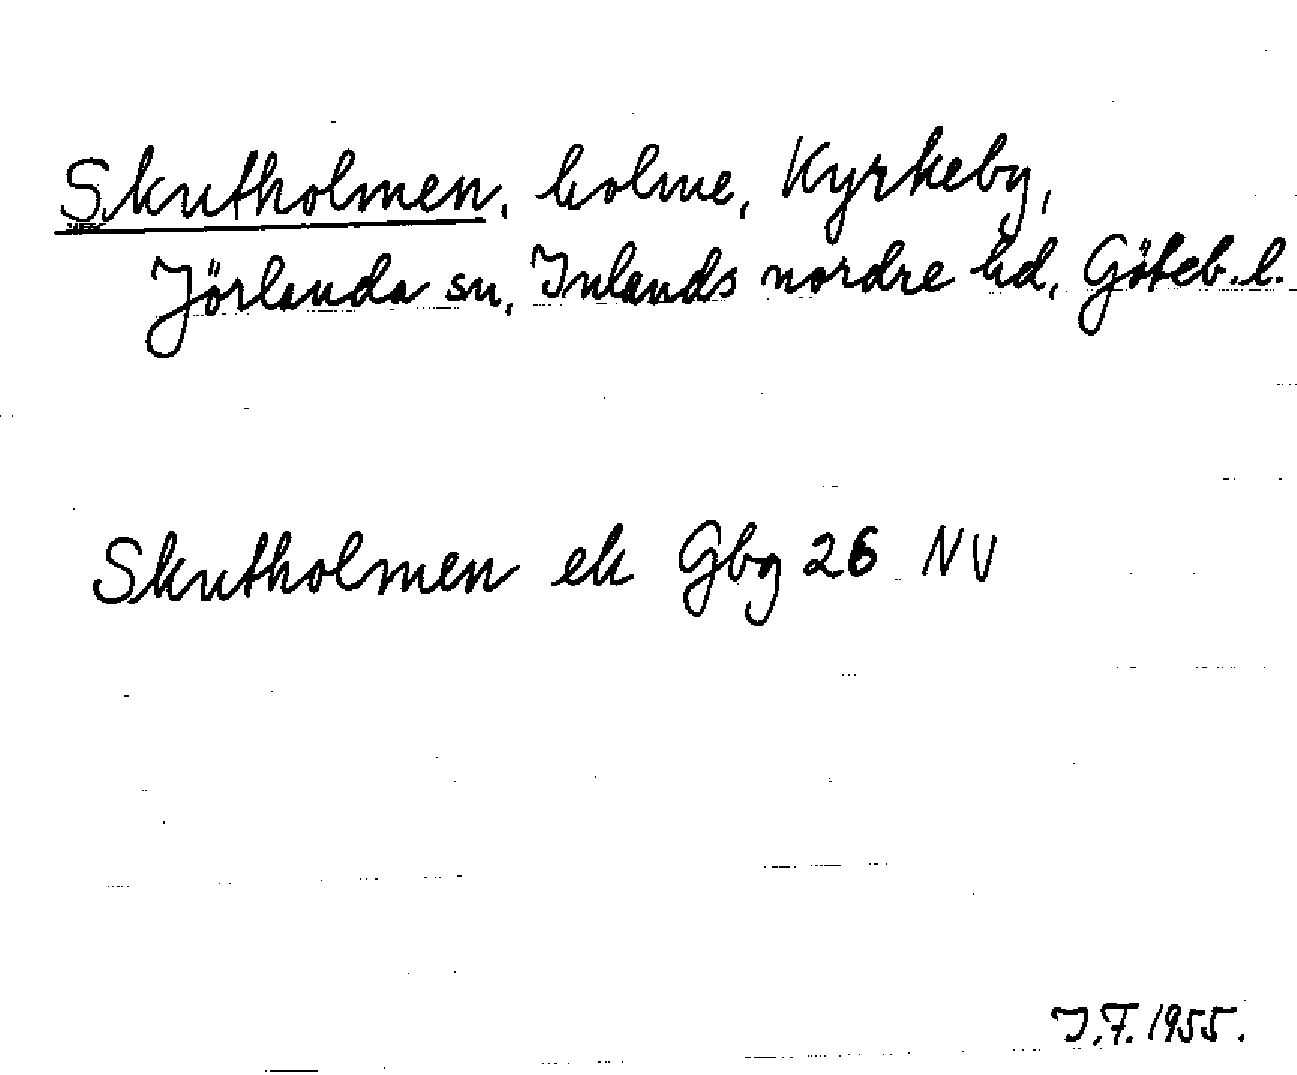 Skutholmen, holme, Kyrkeby,
Jörlanda sn, Inlands nordre hd, Göteb. l.
Skutholmen ek Gbg 26 NV
J.F. 1955.